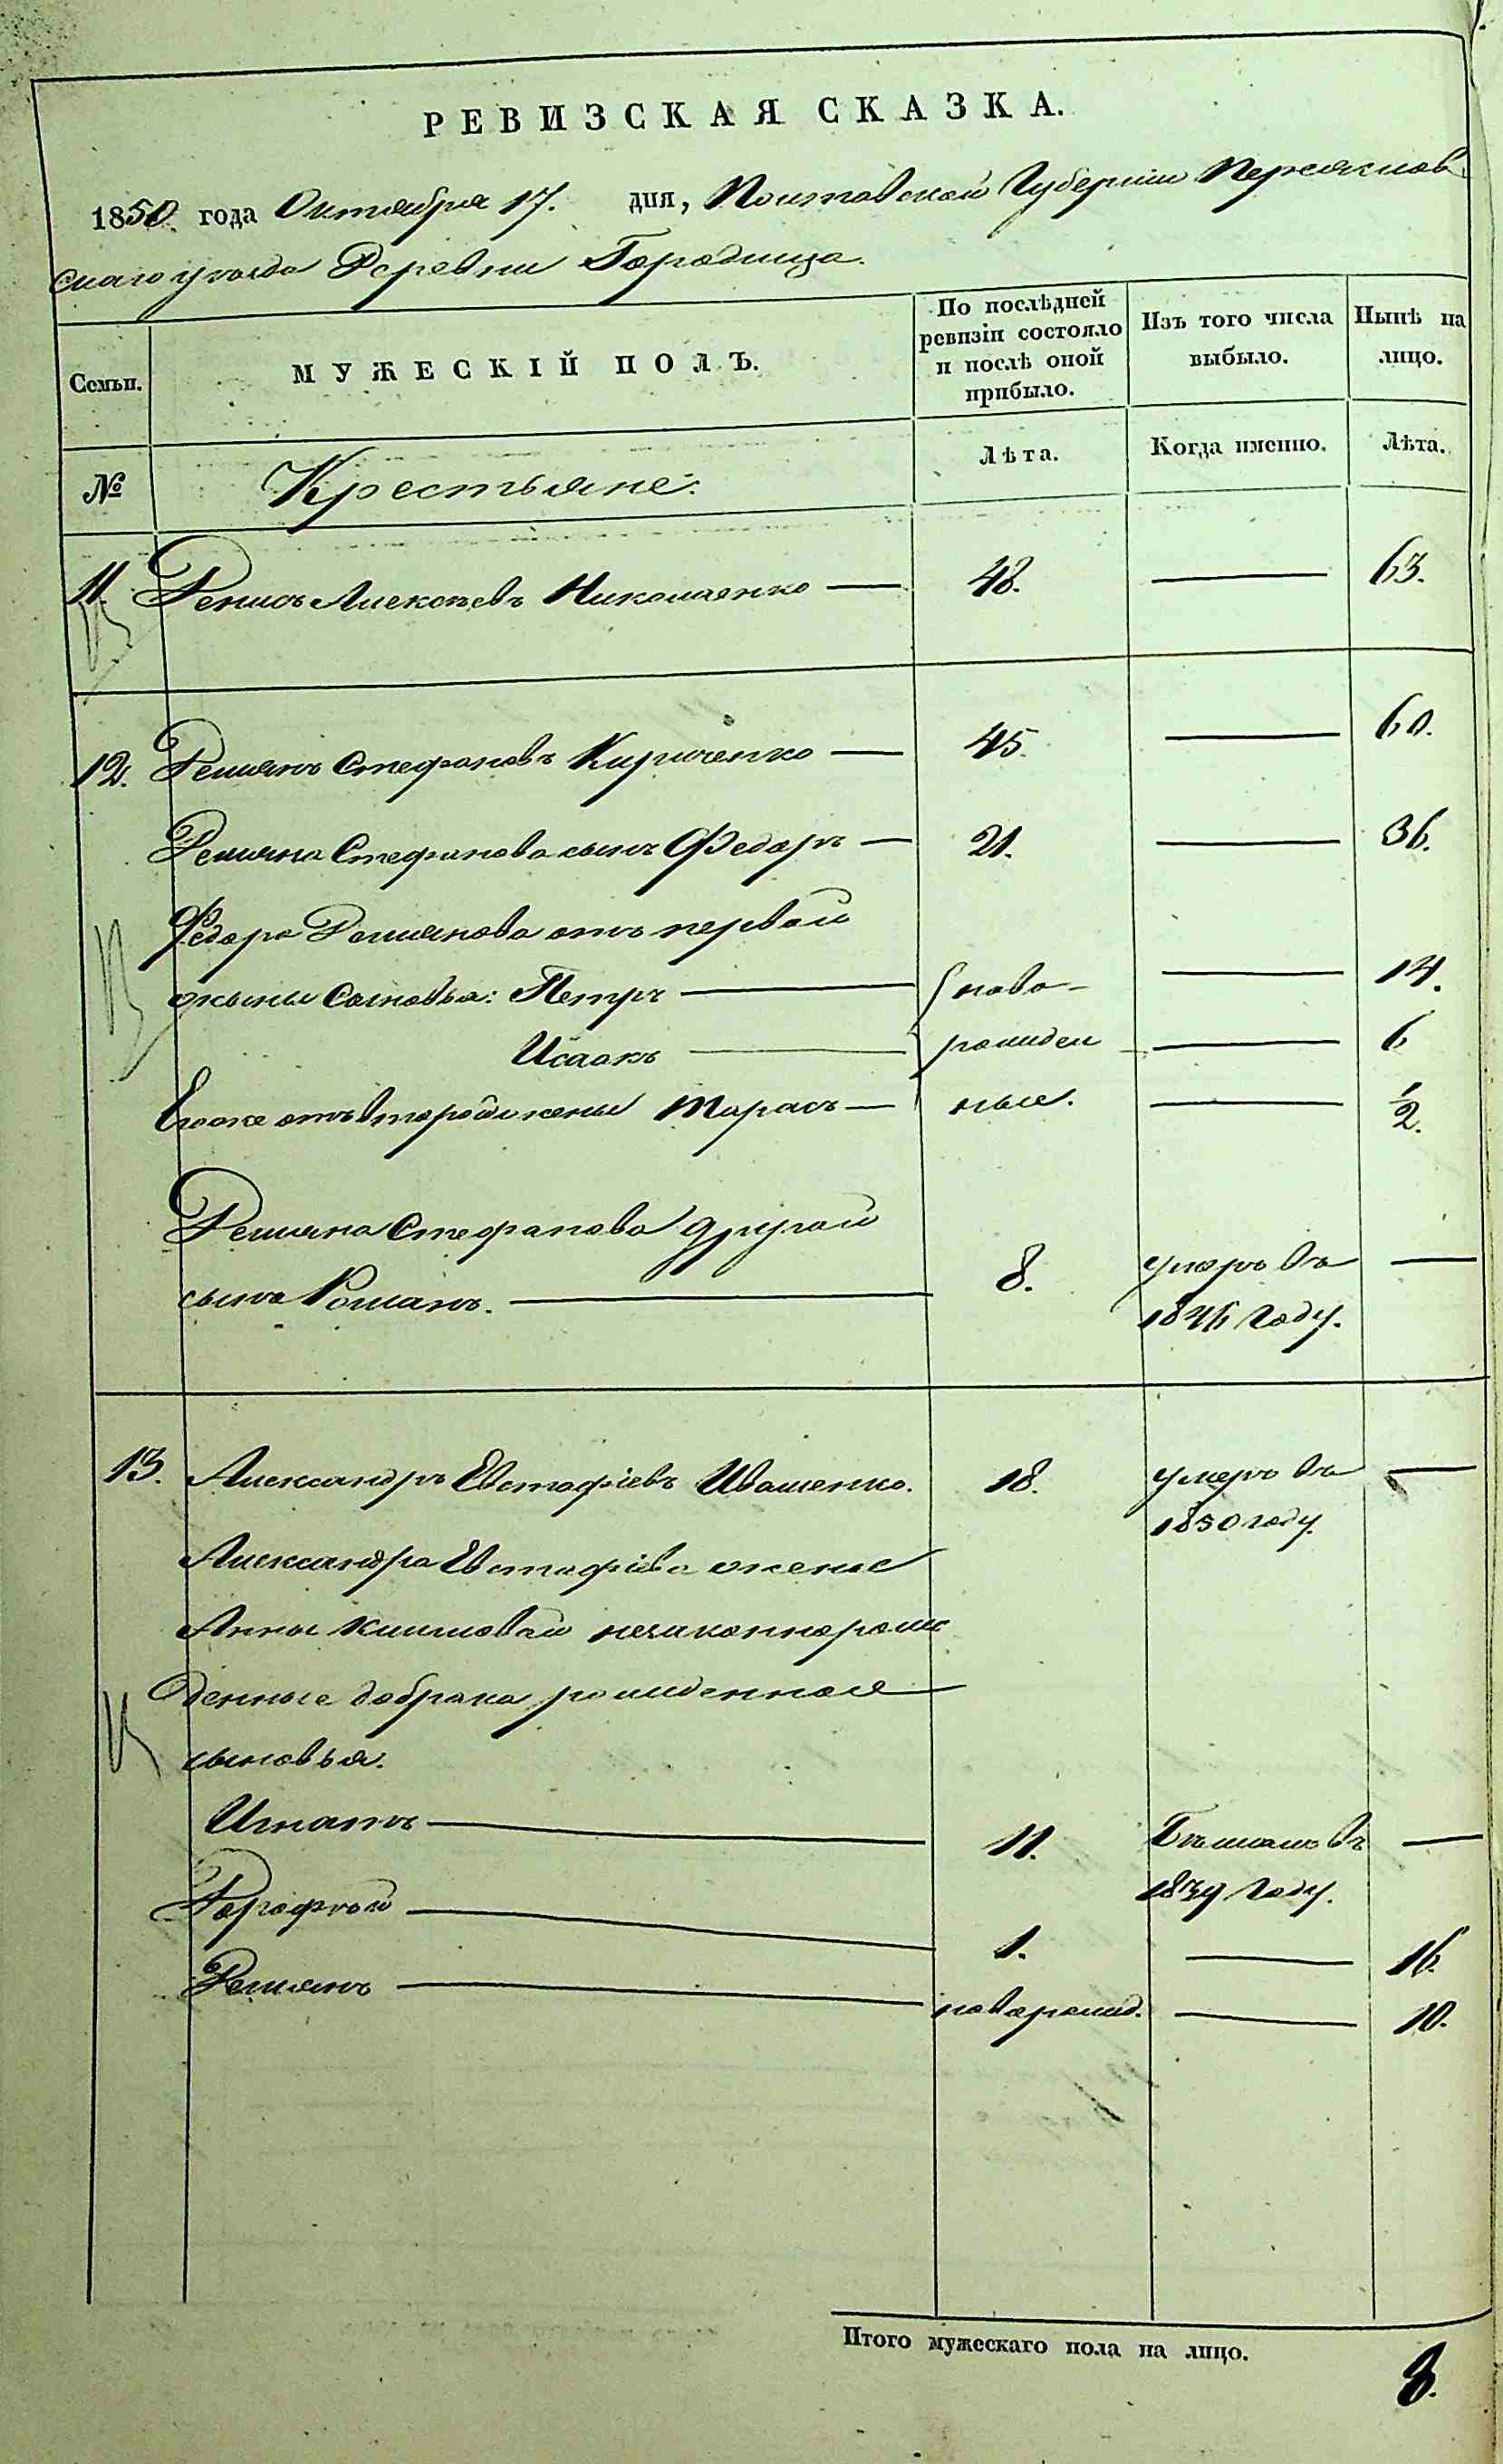 РЕВИЗСКАЯ СКАЗКА.
1850. года Октября 17. дня, Полтавской Губернiи Переяслов
скаго уѣзда Деревни Городища.
Семьи. МУЖЕСКIЙ ПОЛЪ. По послѣдней ревизiи состояло и послѣ оной прибыло. Изъ того числа выбыло. Нынѣ на лицо.
№ Крестьяне: Лѣта. Когда именно. Лѣта.
11. Денисъ Алексѣевъ Николаенко — 48. — 63.
12. Демянъ Стефановъ Кириченко — 45. — 60.
Демяна Стефанова сынъ Федоръ — 21. — 36.
Федора Демянова отъ первой
жены Сыновья: Петръ — ново- — 14.
Исаакъ — рожден — 6
Егоже отъ второй жены Тарасъ — ные. — 1/2.
Демяна Стефанова другой
сынъ Романъ. — 8. умеръ въ —
1846 году.
13. Александръ Евстафiевъ Ивашенко. 18. умеръ въ —
1850 году.
Александра Евстафiева жены
Анны Климовой незаконнорож
денные до брака рожденные
сыновья.
Игнатъ — 11. Бѣжалъ въ —
1839 году.
Дорофѣй — 1. — 16.
Демянъ — новорожд. — 10.
Итого мужескаго пола на лицо. 8.